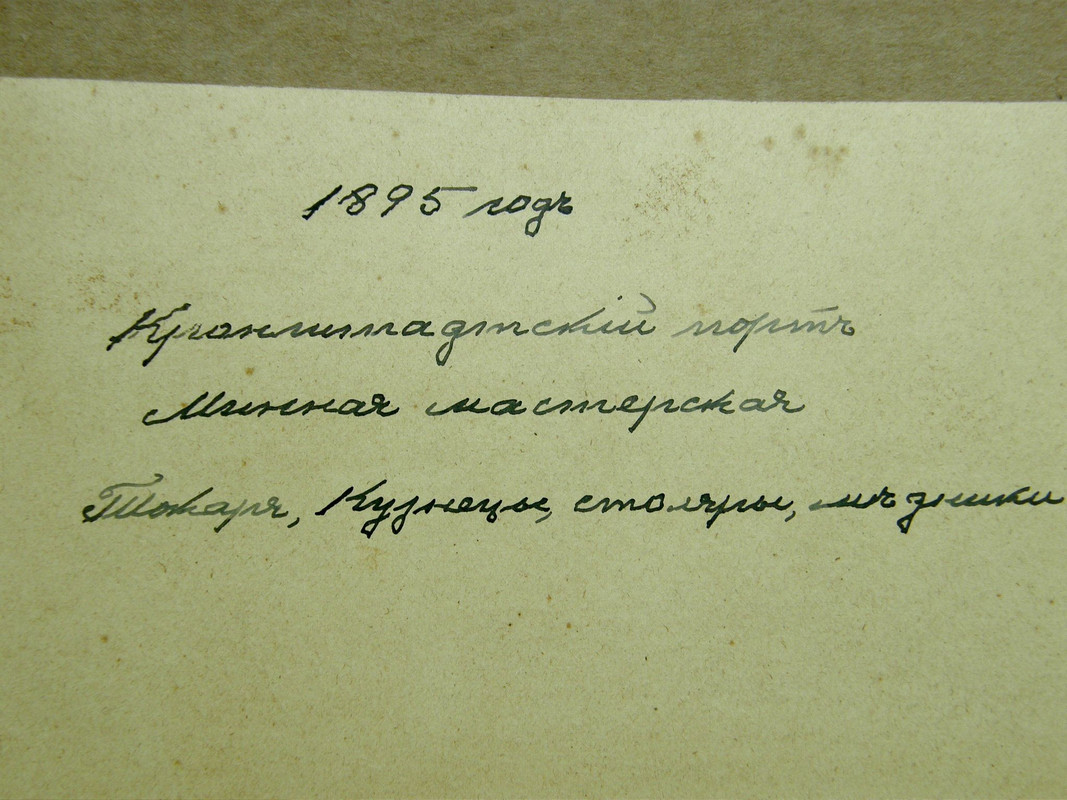 1895 годъ
Кронштадтскій портъ
Минная мастерская
Токаря, Кузнецы, столяры, мѣдники